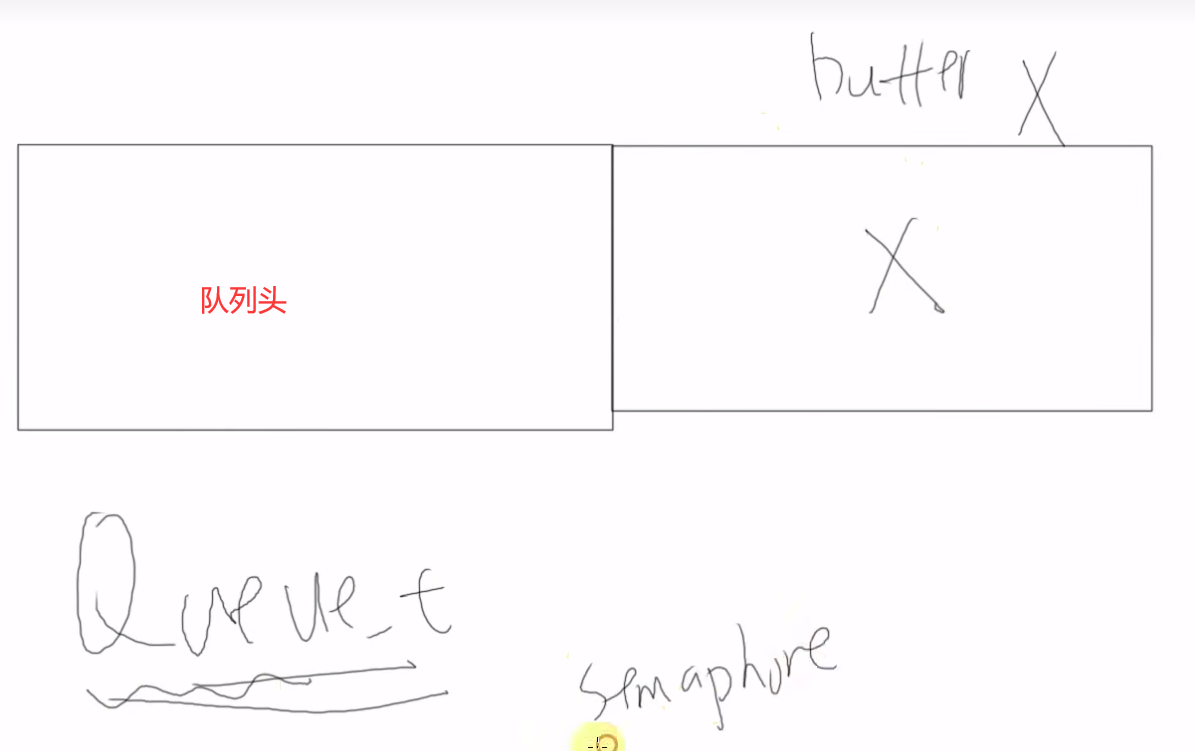 buffer X
队列头
X
Queue_t
semaphore